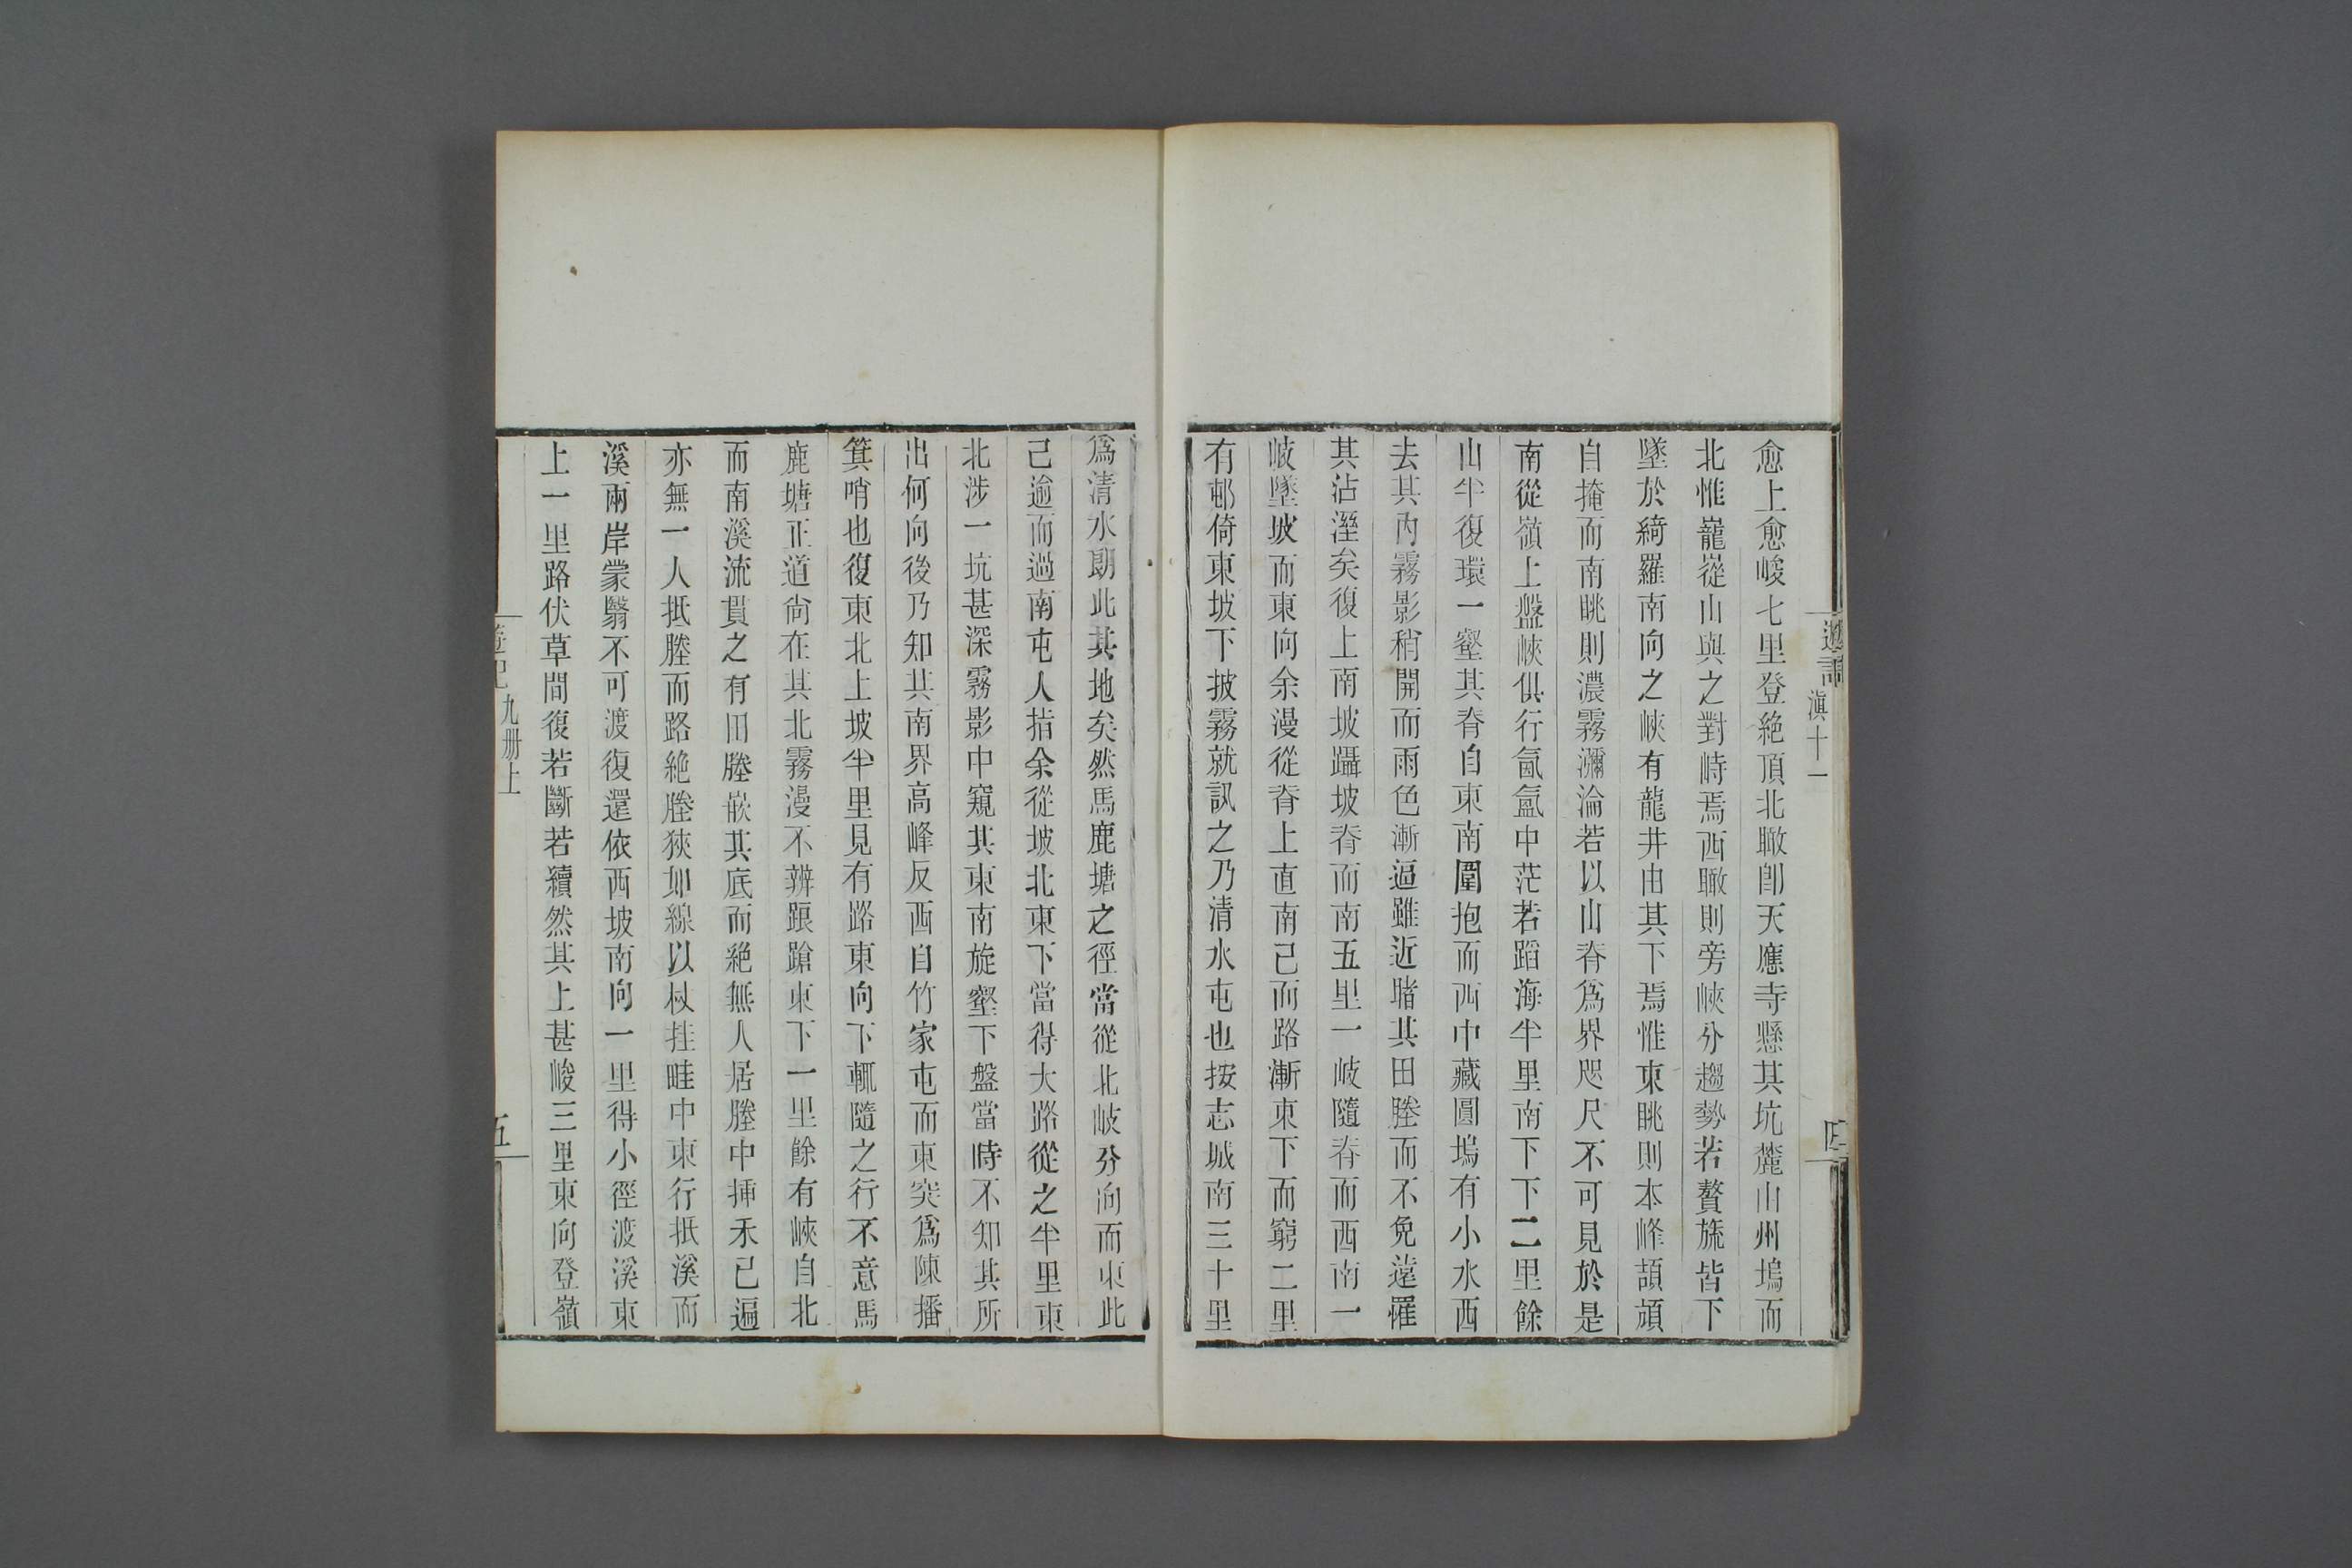 遊記 滇十一 四
愈上愈峻七里登絶頂北瞰卽天應寺懸其坑麓山州塢而
北惟巃嵸山與之對峙焉西瞰則旁峽分趨勢若贅旒皆下
墜於綺羅南向之峽有龍井由其下焉惟東眺則本峰頡頏
自掩而南眺則濃霧瀰淪若以山脊爲界咫尺不可見於是
南從嶺上盤峽俱行氤氳中茫若蹈海半里南下下二里餘
山半復環一壑其脊自東南圍抱而西中藏圓塢有小水西
去其內霧影稍開而雨色漸逼雖近睹其田塍而不免遠罹
其沾溼矣復上南坡躡坡脊而南五里一岐隨脊而西南一
岐墜坡而東向余漫從脊上直南已而路漸東下而窮二里
有邨倚東坡下披霧就訊之乃清水屯也按志城南三十里
爲清水朗此其地矣然馬鹿塘之徑當從北岐分向而東此
已逾而過南屯人指余從坡北東下當得大路從之半里東
北涉一坑甚深霧影中窺其東南旋壑下盤當時不知其所
出何向後乃知其南界高峰反西自竹家屯而東突爲陳播
箕哨也復東北上坡半里見有路東向下輒隨之行不意馬
鹿塘正道尙在其北霧漫不辨踉蹌東下一里餘有峽自北
而南溪流貫之有田塍嵌其底而絕無人居塍中揷禾已遍
亦無一人抵塍而路絶塍狹如線以杖拄畦中東行抵溪而
溪兩岸蒙翳不可渡復還依西坡南向一里得小徑渡溪東
上一里路伏草間復若斷若續然其上甚峻三里東向登嶺
遊記 九册上 五